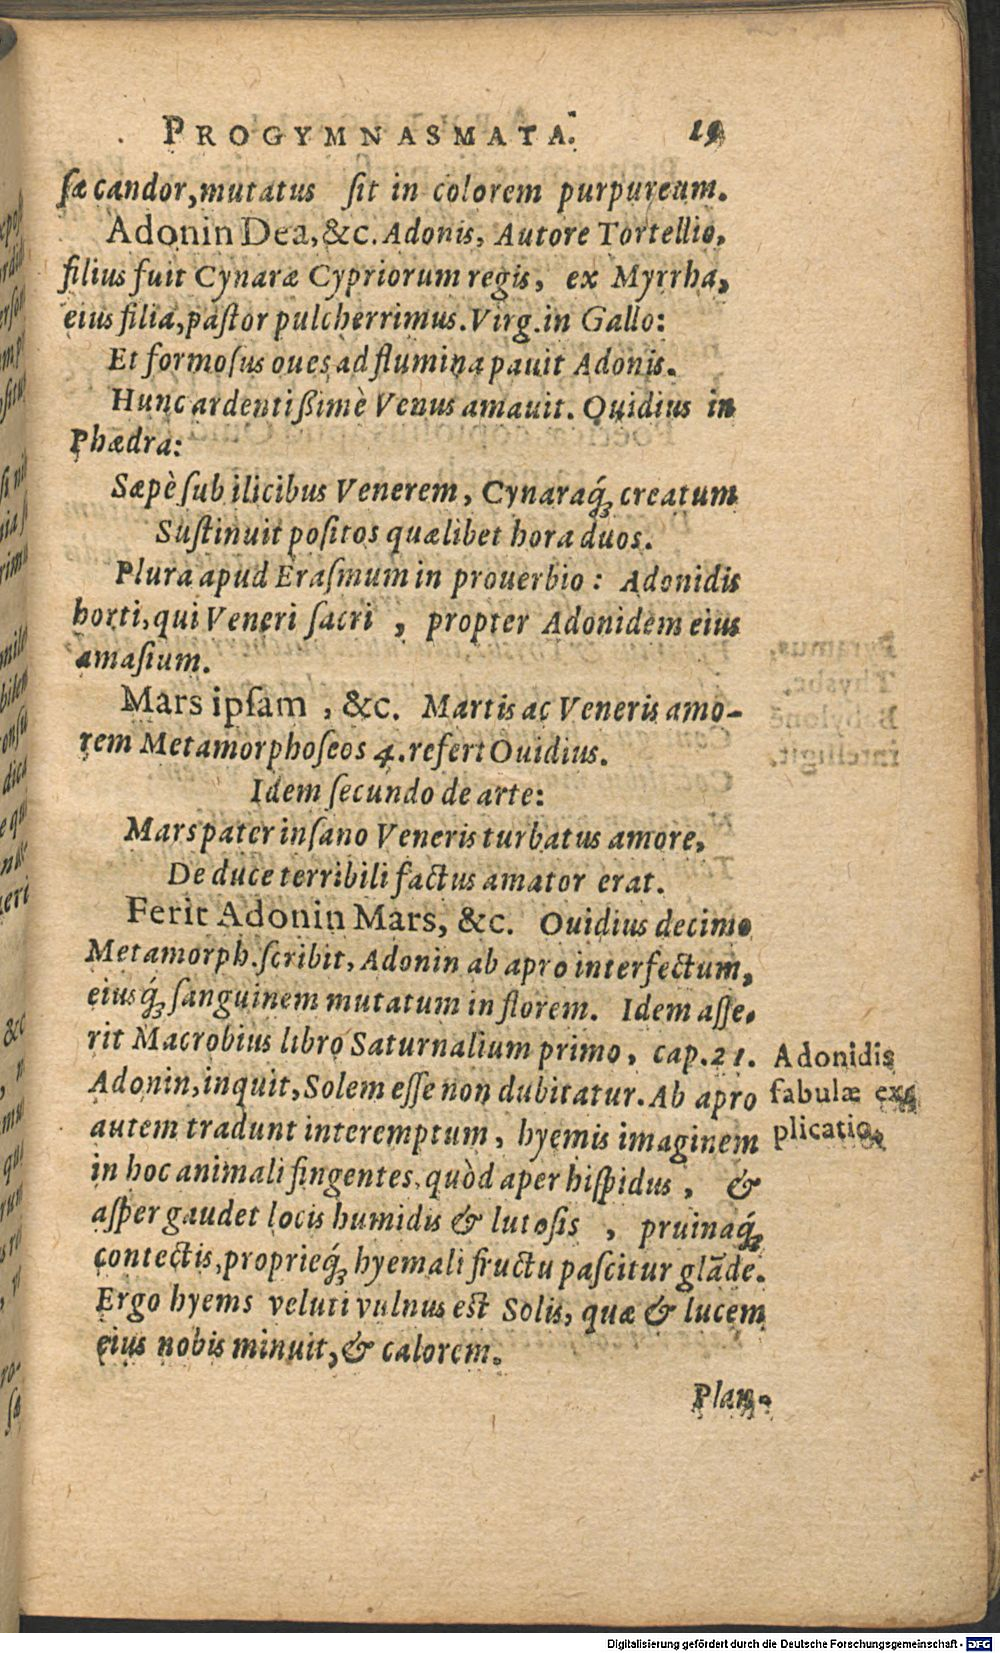 PROGYMNASMATA. 19
ſæ candor, mutatus ſit in colorem purpureum.
Adonin Dea, &c. Adonis, Autore Tortellio,
filius fuit Cynaræ Cypriorum regis, ex Myrrha,
eius filia, paſtor pulcherrimus. Virg. in Gallo:
Et formoſus oues ad flumina pauit Adonis.
Hunc ardentißimè Venus amauit. Ouidius in
Phædra:
Sæpè ſub ilicibus Venerem, Cynaraq́; creatum
Suſtinuit poſitos quælibet hora duos.
Plura apud Eraſmum in prouerbio: Adonidis
horti, qui Veneri ſacri, propter Adonidem eius
amaſium.
Mars ipſam, &c. Martis ac Veneris amo-
rem Metamorphoſeos 4. refert Ouidius.
Idem ſecundo de arte:
Mars pater inſano Veneris turbatus amore,
De duce terribili factus amator erat.
Ferit Adonin Mars, &c. Ouidius decimo
Metamorph. ſcribit, Adonin ab apro interfectum,
eiusq́; ſanguinem mutatum in florem. Idem aſſe-
rit Macrobius libro Saturnalium primo, cap. 21.
Adonin, inquit, Solem eſſe non dubitatur. Ab apro
autem tradunt interemptum, hyemis imaginem
in hoc animali fingentes, quòd aper hiſpidus, &
aſper gaudet locis humidis & lutoſis, pruinaq́;
contectis, proprieq́; hyemali fructu paſcitur glāde.
Ergo hyems veluti vulnus eſt Solis, quæ & lucem
eius nobis minuit, & calorem.
Plan-
Adonidis
fabulæ ex-
plicatio.
Digitalisierung gefördert durch die Deutsche Forschungsgemeinschaft - DFG